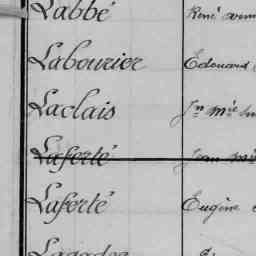 Labbé René
Labourier Edouard
Laclais Jn Mie
Laferté Jean
Laferté Eugène